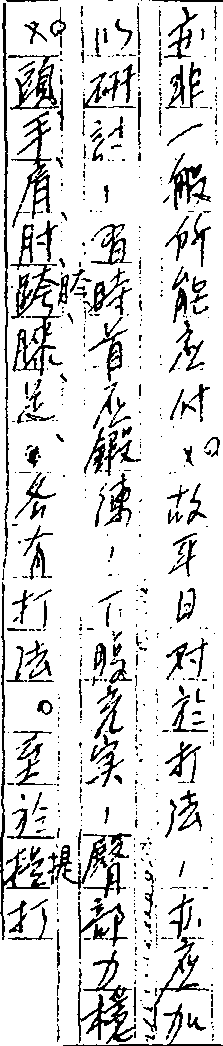 亦非一般所能应付。故平日对於打法，亦应加
以研討，習時首应鍛練，下腹充实，臀部力穩
。頭、手、肩、肘、胯、膝、足、各有打法。至於提打